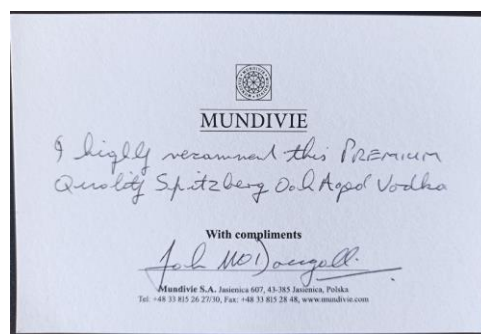 MUNDIVIE
I highly recommend this PREMIUM
Quality Spitzberg Oak Aged Vodka
With compliments
John McDougall.
Mundivie S.A. Jasienica 607, 43-385 Jasienica, Polska
Tel. +48 33 815 26 27/30, Fax: +48 33 815 28 48, www.mundivie.com